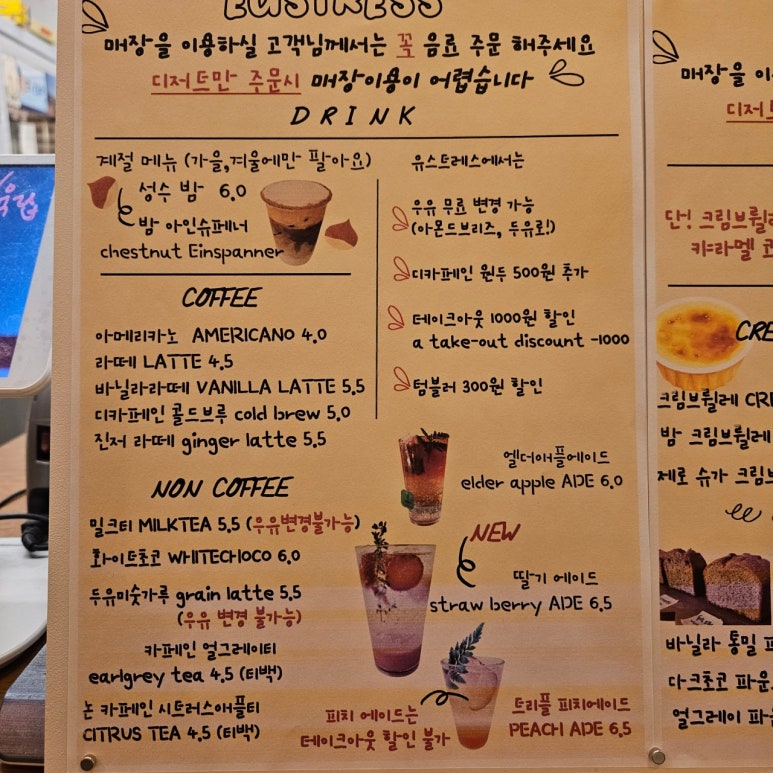 EUSTRESS
매장을 이용하실 고객님께서는 꼭 음료 주문 해주세요
디저트만 주문시 매장이용이 어렵습니다
DRINK
계절 메뉴 (가을,겨울에만 팔아요)
성수 밤 6.0
밤 아인슈페너
chestnut Einspanner
COFFEE
아메리카노 AMERICANO 4.0
라떼 LATTE 4.5
바닐라라떼 VANILLA LATTE 5.5
디카페인 콜드브루 cold brew 5.0
진저 라떼 ginger latte 5.5
NON COFFEE
밀크티 MILKTEA 5.5 (우유변경불가능)
화이트초코 WHITECHOCO 6.0
두유미숫가루 grain latte 5.5
(우유 변경 불가능)
카페인 얼그레이티
earlgrey tea 4.5 (티백)
논 카페인 시트러스애플티
CITRUS TEA 4.5 (티백)
유스트레스에서는
우유 무료 변경 가능
(아몬드브리즈, 두유로!)
디카페인 원두 500원 추가
테이크아웃 1000원 할인
a take-out discount -1000
텀블러 300원 할인
엘더애플에이드
elder apple ADE 6.0
NEW
딸기 에이드
straw berry ADE 6.5
트리플 피치에이드
PEACH ADE 6.5
피치 에이드는
테이크아웃 할인 불가
매장을
단! 크림브륄레
캬라멜
크림브륄레
밤 크림브륄레
제로 슈가
바닐라 통밀
다크초코
얼그레이